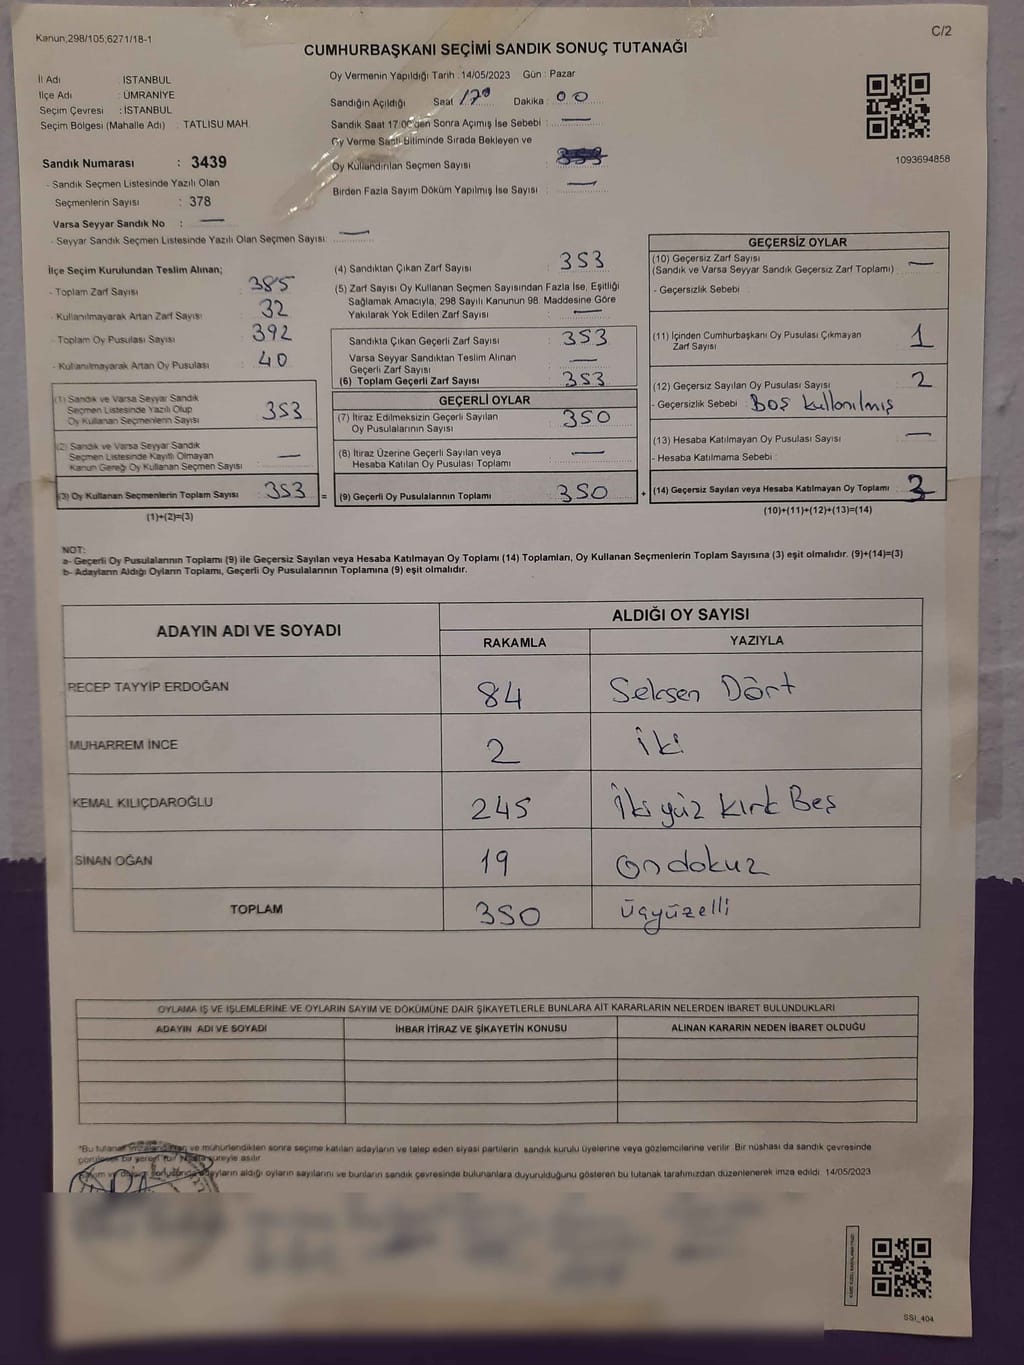 Kanun;298/105;6271/18-1
C/2
CUMHURBAŞKANI SEÇİMİ SANDIK SONUÇ TUTANAĞI
İl Adı : İSTANBUL
İlçe Adı : ÜMRANİYE
Seçim Çevresi : İSTANBUL
Seçim Bölgesi (Mahalle Adı) : TATLISU MAH.
Sandık Numarası : 3439
- Sandık Seçmen Listesinde Yazılı Olan
Seçmenlerin Sayısı : 378
Varsa Seyyar Sandık No : —
- Seyyar Sandık Seçmen Listesinde Yazılı Olan Seçmen Sayısı : —
Oy Vermenin Yapıldığı Tarih : 14/05/2023 Gün : Pazar
Sandığın Açıldığı Saat 17 Dakika : 00
Sandık Saat 17:00'den Sonra Açımış İse Sebebi : —
Oy Verme Saati Bitiminde Sırada Bekleyen ve
Oy Kullandırılan Seçmen Sayısı :
Birden Fazla Sayım Döküm Yapılmış İse Sayısı : —
1093694858
İlçe Seçim Kurulundan Teslim Alınan;
- Toplam Zarf Sayısı : 385
- Kullanılmayarak Artan Zarf Sayısı : 32
- Toplam Oy Pusulası Sayısı : 392
- Kullanılmayarak Artan Oy Pusulası : 40
(1) Sandık ve Varsa Seyyar Sandık
Seçmen Listesinde Yazılı Olup
Oy Kullanan Seçmenlerin Sayısı : 353
(2) Sandık ve Varsa Seyyar Sandık
Seçmen Listesinde Kayıtlı Olmayan
Kanun Gereği Oy Kullanan Seçmen Sayısı : —
(3) Oy Kullanan Seçmenlerin Toplam Sayısı : 353 =
(1)+(2)=(3)
(4) Sandıktan Çıkan Zarf Sayısı : 353
(5) Zarf Sayısı Oy Kullanan Seçmen Sayısından Fazla İse, Eşitliği
Sağlamak Amacıyla, 298 Sayılı Kanunun 98. Maddesine Göre
Yakılarak Yok Edilen Zarf Sayısı : —
Sandıkta Çıkan Geçerli Zarf Sayısı : 353
Varsa Seyyar Sandıktan Teslim Alınan
Geçerli Zarf Sayısı : —
(6) Toplam Geçerli Zarf Sayısı : 353
GEÇERLİ OYLAR
(7) İtiraz Edilmeksizin Geçerli Sayılan
Oy Pusulalarının Sayısı : 350
(8) İtiraz Üzerine Geçerli Sayılan veya
Hesaba Katılan Oy Pusulası Toplamı : —
(9) Geçerli Oy Pusulalarının Toplamı : 350 +
GEÇERSİZ OYLAR
(10) Geçersiz Zarf Sayısı
(Sandık ve Varsa Seyyar Sandık Geçersiz Zarf Toplamı) : —
- Geçersizlik Sebebi :
(11) İçinden Cumhurbaşkanı Oy Pusulası Çıkmayan
Zarf Sayısı : 1
(12) Geçersiz Sayılan Oy Pusulası Sayısı : 2
- Geçersizlik Sebebi : Boş kullanılmış
(13) Hesaba Katılmayan Oy Pusulası Sayısı : —
- Hesaba Katılmama Sebebi :
(14) Geçersiz Sayılan veya Hesaba Katılmayan Oy Toplamı : 3
(10)+(11)+(12)+(13)=(14)
NOT:
a- Geçerli Oy Pusulalarının Toplamı (9) ile Geçersiz Sayılan veya Hesaba Katılmayan Oy Toplamı (14) Toplamları, Oy Kullanan Seçmenlerin Toplam Sayısına (3) eşit olmalıdır. (9)+(14)=(3)
b- Adayların Aldığı Oyların Toplamı, Geçerli Oy Pusulalarının Toplamına (9) eşit olmalıdır.
ADAYIN ADI VE SOYADI ALDIĞI OY SAYISI
RAKAMLA YAZIYLA
RECEP TAYYİP ERDOĞAN 84 Seksen Dört
MUHARREM İNCE 2 İki
KEMAL KILIÇDAROĞLU 245 İkiyüz kırk Beş
SİNAN OĞAN 19 ondokuz
TOPLAM 350 üçyüzelli
OYLAMA İŞ VE İŞLEMLERİNE VE OYLARIN SAYIM VE DÖKÜMÜNE DAİR ŞİKAYETLERLE BUNLARA AİT KARARLARIN NELERDEN İBARET BULUNDUKLARI
ADAYIN ADI VE SOYADI İHBAR İTİRAZ VE ŞİKAYETİN KONUSU ALINAN KARARIN NEDEN İBARET OLDUĞU
*Bu tutanak imzalandıktan ve mühürlendikten sonra seçime katılan adayların ve talep eden siyasi partilerin sandık kurulu üyelerine veya gözlemcilerine verilir. Bir nüshası da sandık çevresinde
bir yere süreyle asılır.
adayların aldığı oyların sayılarını ve bunların sandık çevresinde bulunanlara duyurulduğunu gösteren bu tutanak tarafımızdan düzenlenerek imza edildi. 14/05/2023
SSI_404